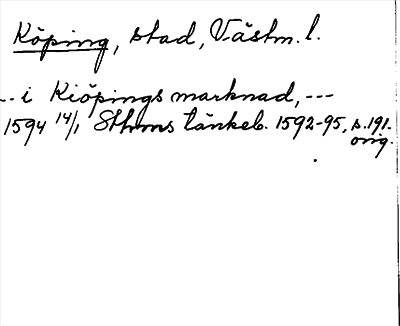 Köping, stad, Västm. l.
-- i Kiöpings marknad, ---
1594 14/1 Sthms tänkeb. 1592-95, s. 191.
orig.